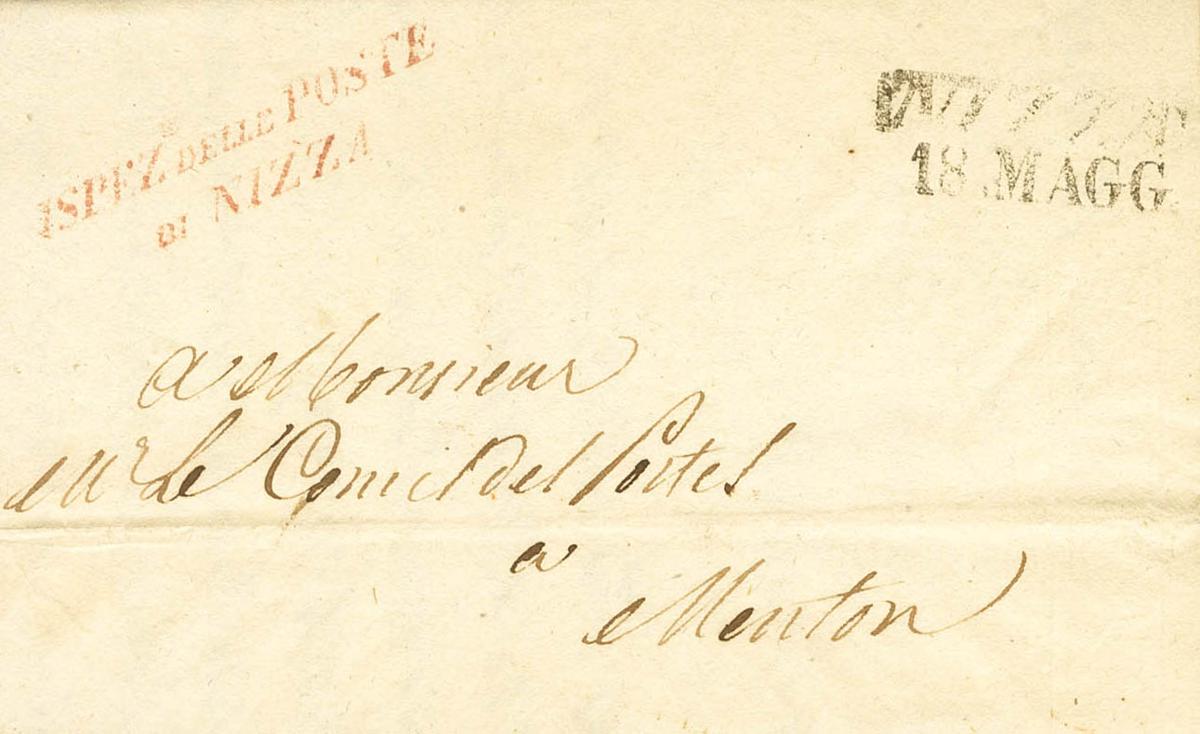 ISPEZ DELLE POSTE
DI NIZZA
NIZZA
18 .MAGG
A Monsieur
Mr Le Comis Des Postes
a
Menton